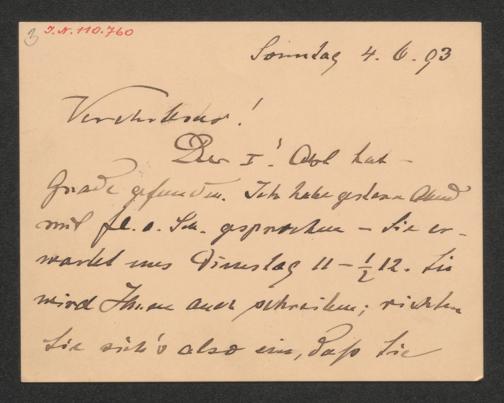 3 J.N. 110.760
Sonntag 4. 6. 93
Verehrtester!
Der I. Akt hat
Gnade gefunden. Ich habe gestern Abend
mit fl. v. Sch. gesprochen – Sie er-
wartet uns Dienstag 11 – ½12. Sie
wird Ihnen auch schreiben; richten
Sie sich's also ein, daß Sie